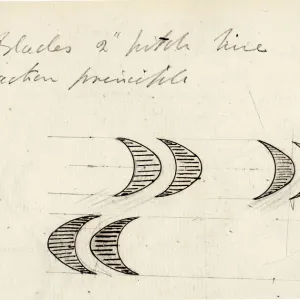 Blades 2" pitch line
action principle